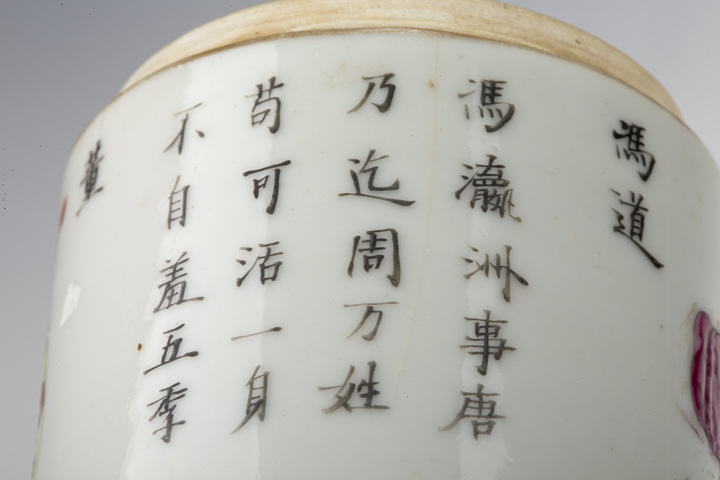 馮道
馮瀛洲事唐
乃迄周万姓
苟可活一身
不自羞五季
董